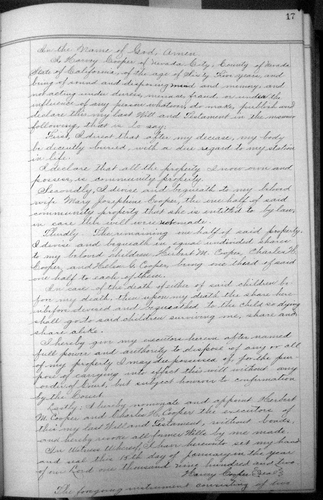 17
In the Name of God, Amen
I, Harry Cooper of Nevada City, County of Nevada
State of California, of the age of Sixty Five years, and
being of sound and disposing mind and memory, and
not acting under duress, menace, fraud or under the
influence of any person whatever, do make, publish and
declare this my last Will and Testament in the manner
following, that is to say:
First, I direct that after my decease, my body
be decently buried, with a due regard to my station
in life.
I declare that all the property I now own and
possess, is community property.
Secondly, I devise and bequeath to my beloved
wife Mary Josephine Cooper, the one half of said
community property that she is entitled to by law,
in case this will were not made.
Thirdly. The remaining one half of said property,
I devise and bequeath in equal undivided shares
to my beloved children Herbert M. Cooper, Charles W.
Cooper, and C. Cooper, being one third of said
one half to each of them.
In case of the death of either of said children be-
fore my death, then upon my death the share here-
inbefore devised and bequeathed to the child so dying
shall go to said children surviving me, share and
share alike.
I hereby give my executors herein after named
full power and authority to dispose of any or all
of my property I may die possessed of, for the pur-
pose of carrying into effect this will without any
order of Court, but subject however to confirmation
by the Court.
Lastly, I hereby nominate and appoint Herbert
M. Cooper and Charles W. Cooper the executors of
this my last Will and Testament, without bonds,
and hereby revoke all former Wills by me made.
In Witness Whereof, I have hereunto set my hand
and seal this day of January in the year
of our Lord one thousand nine hundred and two.
Harry Cooper
The foregoing instrument consisting of two